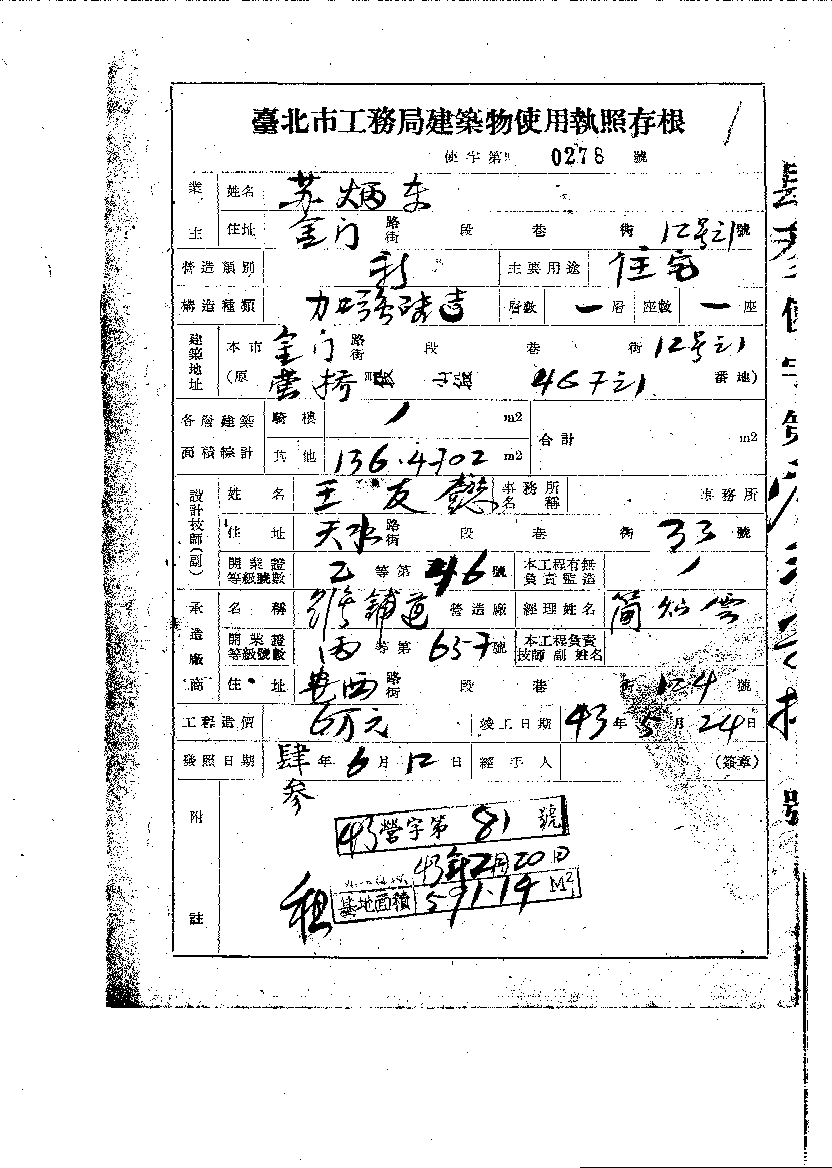 臺北市工務局建築物使用執照存根
使字第 0278 號
業主 姓名 苏炳东
住址 金门 路街 段 巷 街 12号之1 號
營造類別 新 主要用途 住宅
構造種類 加强砖造 層數 一 層 座數 一 座
建築地址 本市 金门 路街 段 巷 街 12号之1
(原 營橋 段 467之1 番地)
各層建築面積總計 騎樓 / m2 合計 m2
其他 136.4702 m2
設計技師(副) 姓名 王友懋 事務所名稱 事務所
住址 天水 路街 段 巷 街 33 號
開業證等級號數 乙 等第 46 號 本工程有無負責監造 /
承造廠商 名稱 舖道 營造廠 經理姓名 簡 雲
開業證等級號數 丙 等第 657 號 本工程負責技師 副 姓名
住址 西 路街 段 巷 街 124 號
工程造價 6万元 竣工日期 43 年 5 月 24 日
發照日期 肆参 年 6 月 12 日 經手人 (簽章)
附註
43營字第 81 號
43年2月20日
租 基地面積 591.14 M2